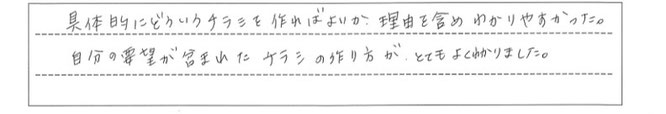 具体的にどういうチラシを作ればよいか、理由を含めわかりやすかった。
自分の要望が含まれたチラシの作り方が、とてもよくわかりました。